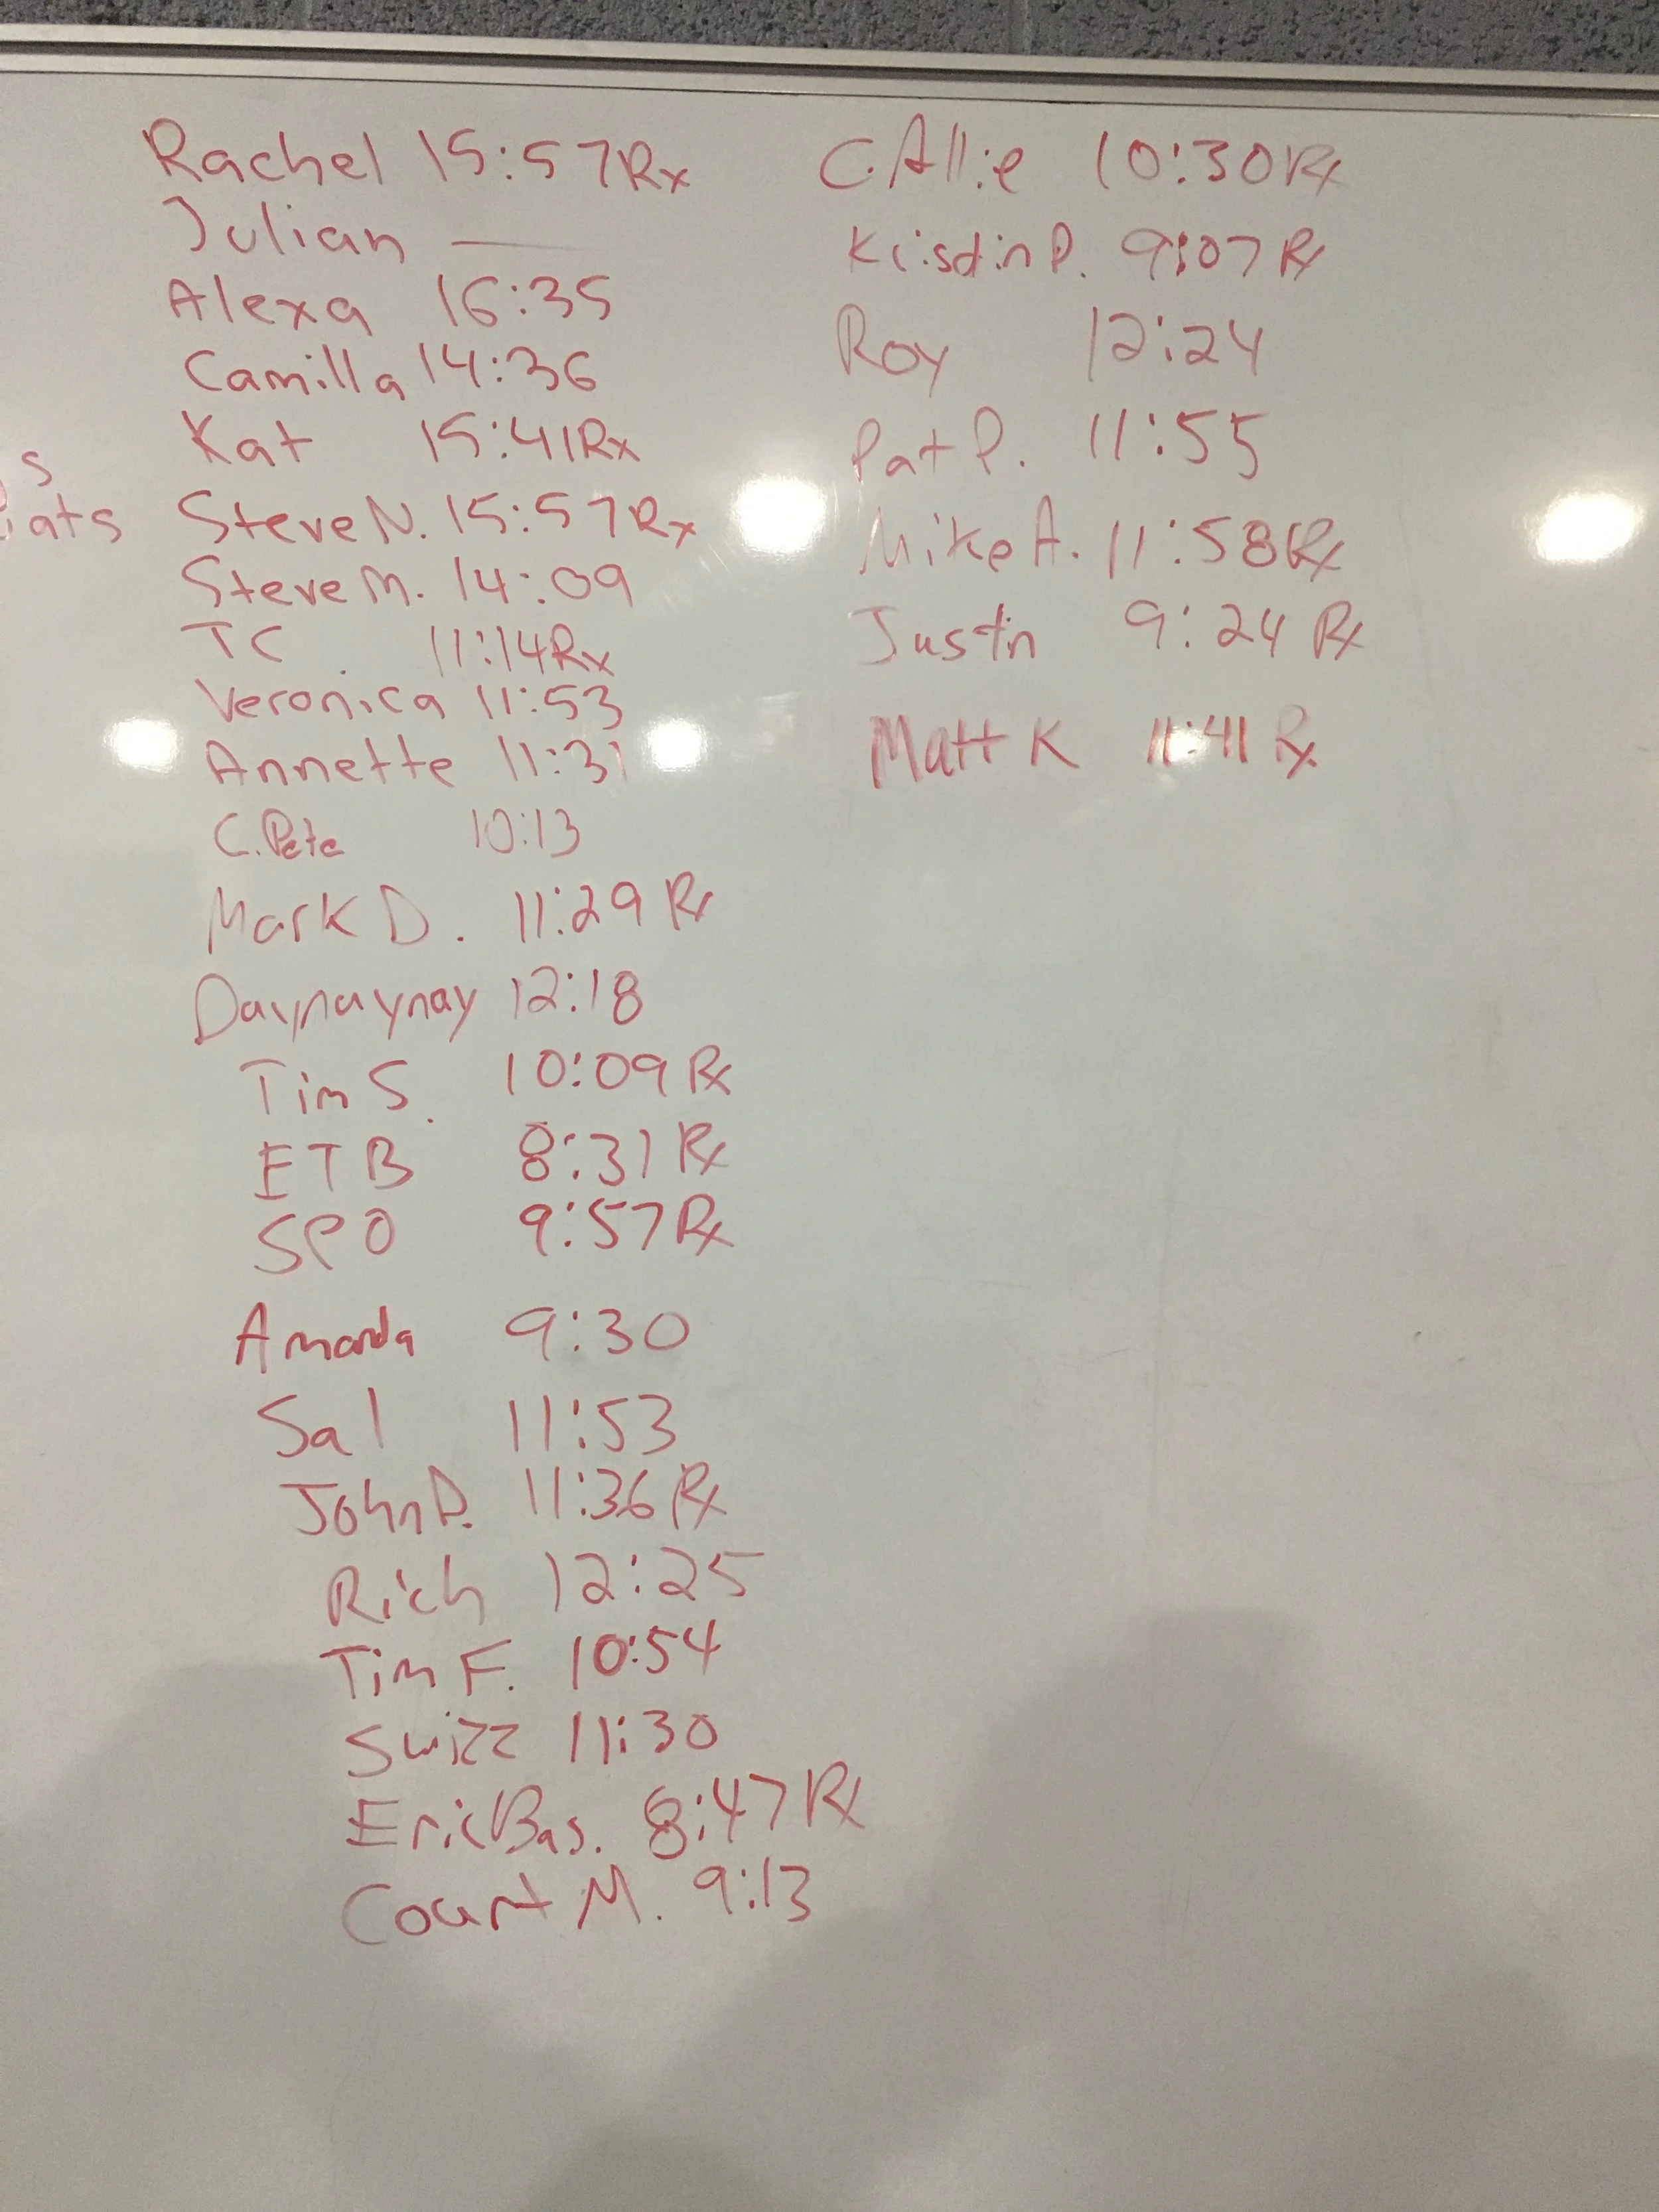 Rachel 15:57 Rx
Julian —
Alexa 16:35
Camilla 14:36
Kat 15:41 Rx
s
ats
Steve N. 15:57 Rx
Steve M. 14:09
TC 11:14 Rx
Veronica 11:53
Annette 11:31
C. Pete 10:13
Mark D. 11:29 Rx
Daynaynay 12:18
Tim S. 10:09 Rx
ETB 8:31 Rx
SPO 9:57 Rx
Amanda 9:30
Sal 11:53
John P. 11:36 Rx
Rich 12:25
Tim F. 10:54
Swizz 11:30
Eric Bas. 8:47 Rx
Court M. 9:13
C. Allie 10:30 Rx
Kristin P. 9:07 Rx
Roy 12:24
Pat P. 11:55
Mike A. 11:58 Rx
Justin 9:24 Rx
Matt K 11:41 Rx